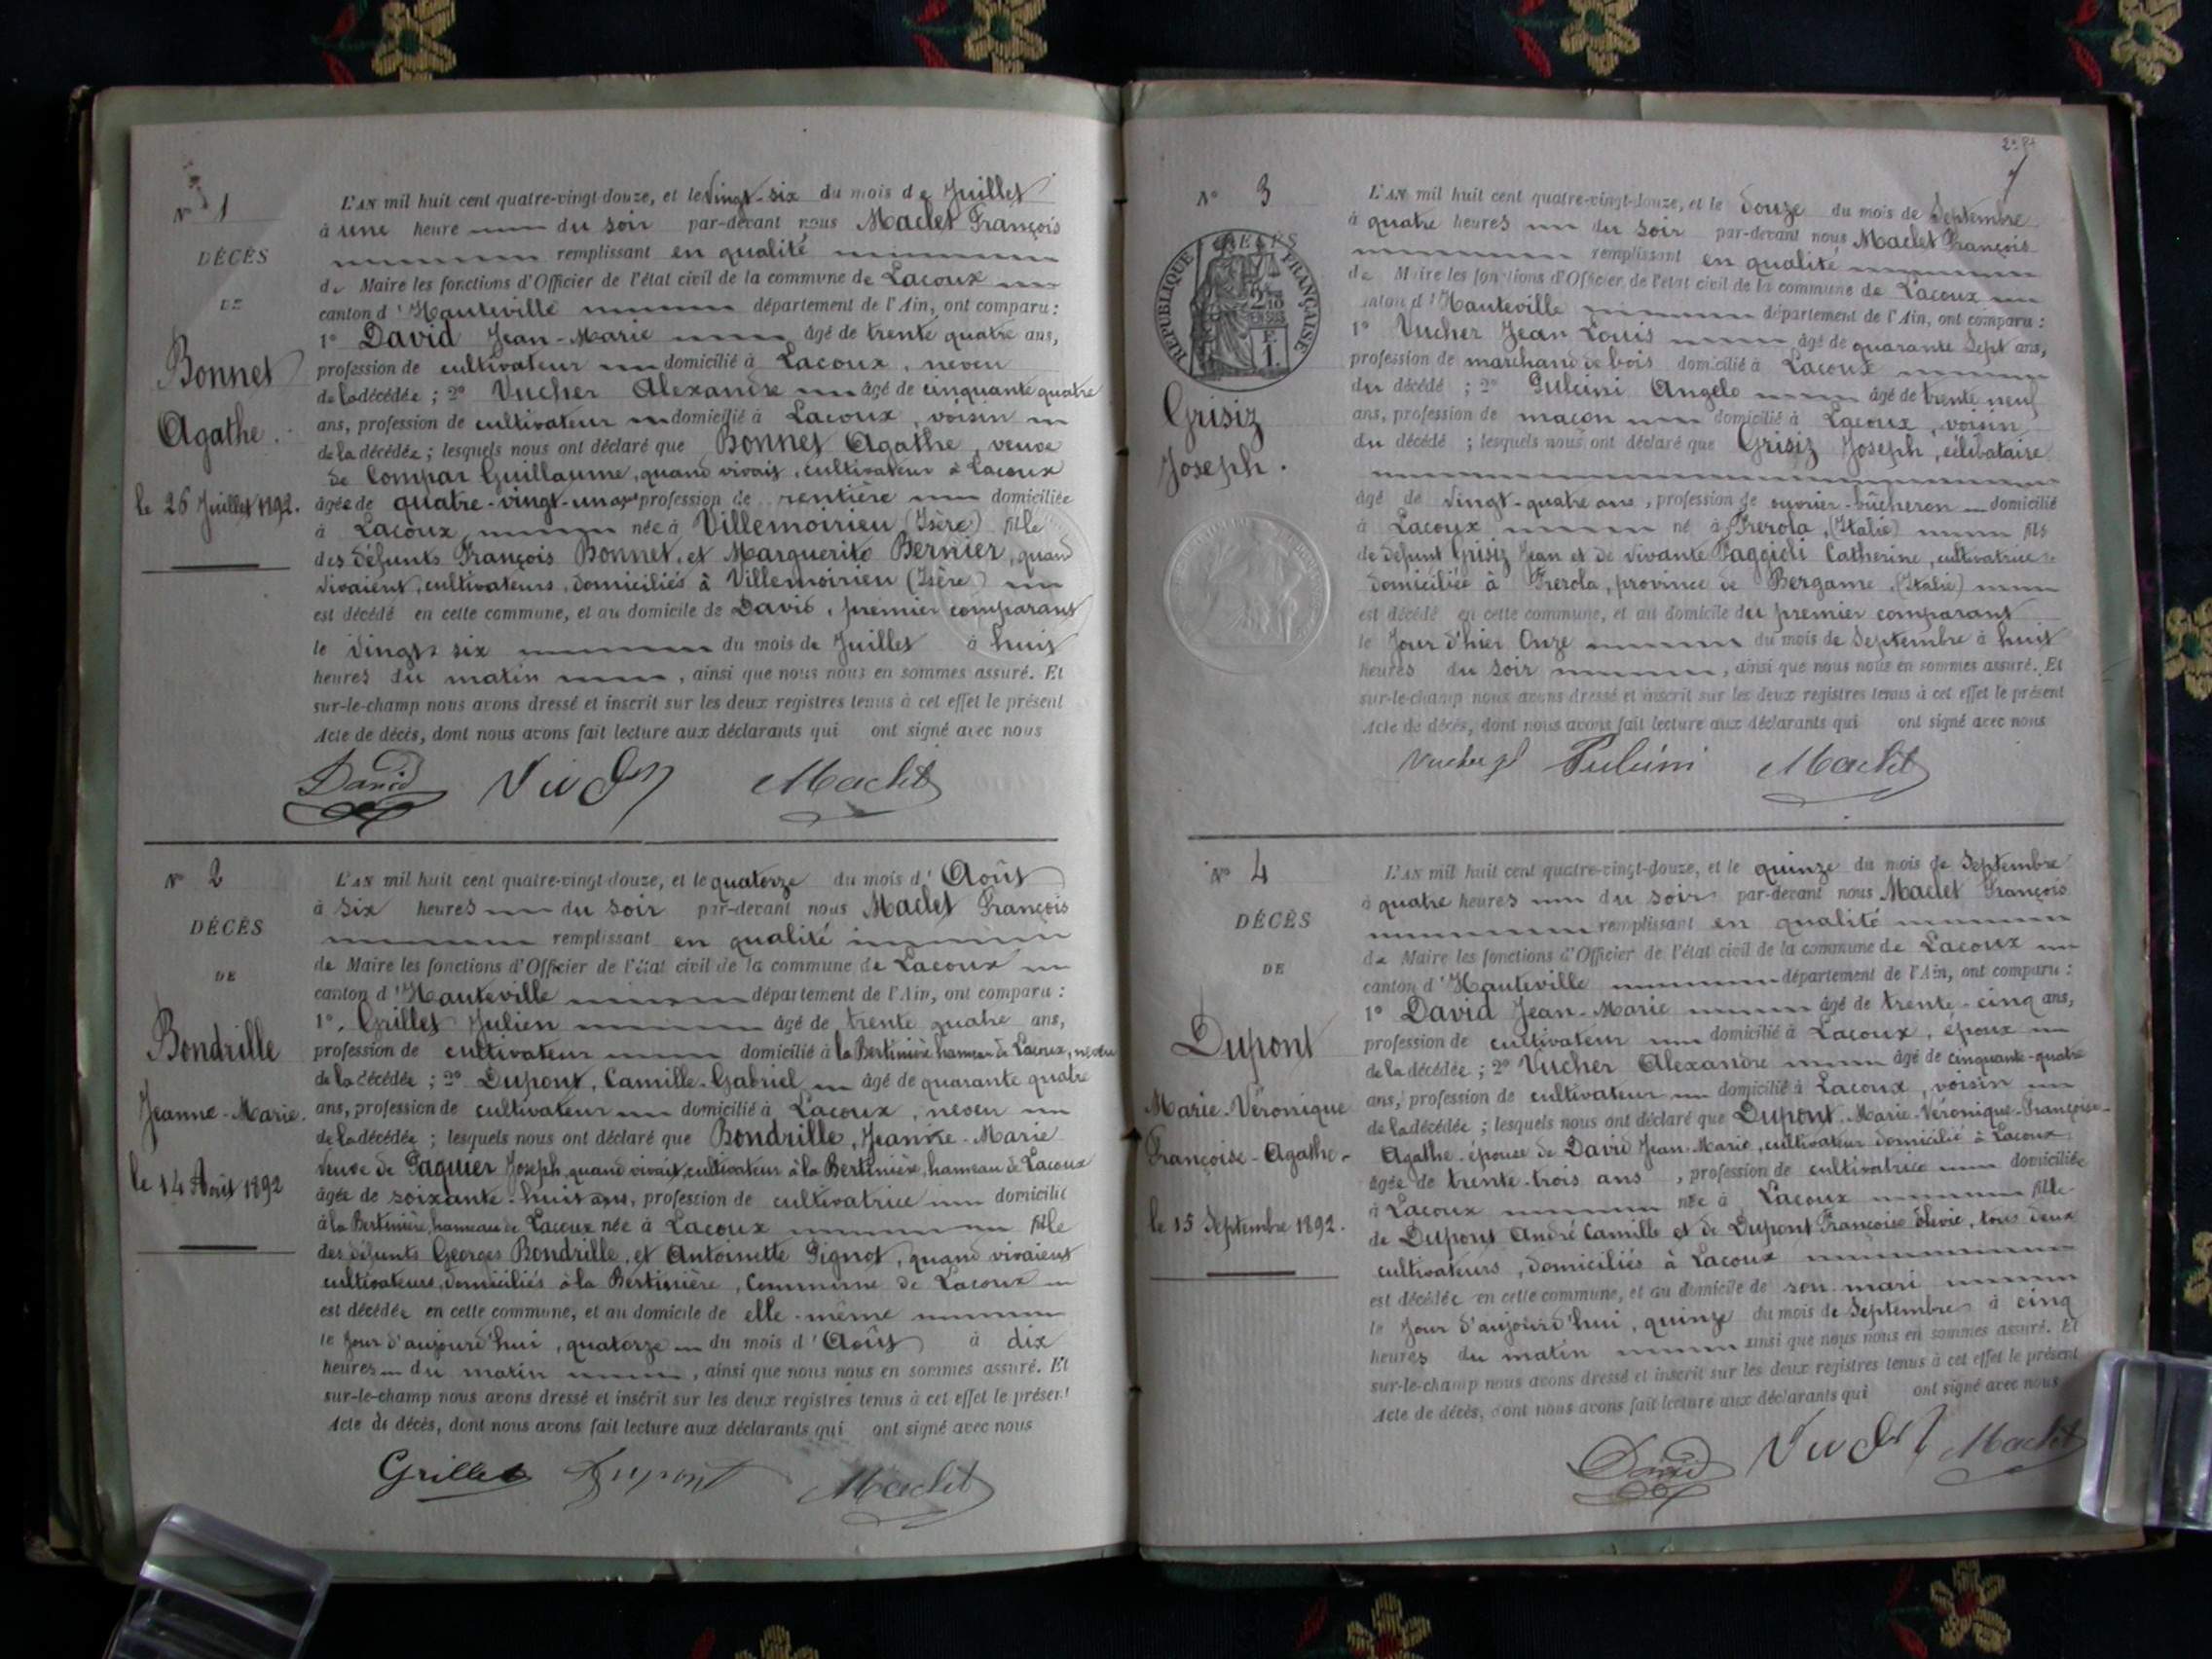 N° 1
DÉCÈS
DE
Bonnet
Agathe.
le 26 Juillet 1892.
L'AN mil huit cent quatre-vingt-douze, et le Vingt-six du mois de Juillet
à une heure du soir par-devant nous Maclet François
remplissant en qualité
de Maire les fonctions d'Officier de l'état civil de la commune de Lacoux
canton d'Hauteville département de l'Ain, ont comparu :
1° David Jean-Marie âgé de trente quatre ans,
profession de cultivateur domicilié à Lacoux, neveu
de la décédée ; 2° Vucher Alexandre âgé de cinquante quatre
ans, profession de cultivateur domicilié à Lacoux, voisin
de la décédée ; lesquels nous ont déclaré que Bonnet Agathe, veuve
de Compar Guillaume, quand vivait, cultivateur à Lacoux
âgée de quatre-vingt-un ans profession de rentière domiciliée
à Lacoux née à Villemoirieu (Isère) fille
des défunts François Bonnet, et Marguerite Bernier, quand
vivaient, cultivateurs, domiciliés à Villemoirieu (Isère)
est décédé en cette commune, et au domicile de David, premier comparant
le vingt six du mois de Juillet à huit
heures du matin, ainsi que nous nous en sommes assuré. Et
sur-le-champ nous avons dressé et inscrit sur les deux registres tenus à cet effet le présent
Acte de décès, dont nous avons fait lecture aux déclarants qui ont signé avec nous
David Maclet
N° 2
DÉCÈS
DE
Bondrille
Jeanne-Marie.
le 14 Août 1892
L'AN mil huit cent quatre-vingt-douze, et le quatorze du mois d'Août
à six heures du soir par-devant nous Maclet François
remplissant en qualité
de Maire les fonctions d'Officier de l'état civil de la commune de Lacoux
canton d'Hauteville département de l'Ain, ont comparu :
1°. Grillet Julien âgé de trente quatre ans,
profession de cultivateur domicilié à la Bertinière hameau de Lacoux, neveu
de la décédée ; 2° Dupont, Camille-Gabriel âgé de quarante quatre
ans, profession de cultivateur domicilié à Lacoux, neveu
de la décédée ; lesquels nous ont déclaré que Bondrille, Jeanne-Marie
veuve de Paquier Joseph, quand vivait, cultivateur à la Bertinière, hameau de Lacoux
âgée de soixante-huit ans, profession de cultivatrice domicilié
à la Bertinière, hameau de Lacoux née à Lacoux fille
des défunts Georges Bondrille, et Antoinette Pignot, quand vivaient
cultivateurs, domiciliés à la Bertinière, Commune de Lacoux
est décédée en cette commune, et au domicile de elle-même
le Jour d'aujourd'hui, quatorze du mois d'Août à dix
heures du matin, ainsi que nous nous en sommes assuré. Et
sur-le-champ nous avons dressé et inscrit sur les deux registres tenus à cet effet le présent
Acte de décès, dont nous avons fait lecture aux déclarants qui ont signé avec nous
Grillet Dupont Maclet
7
N° 3
RÉPUBLIQUE FRANÇAISE
Grisiz
Joseph.
L'AN mil huit cent quatre-vingt-douze, et le douze du mois de Septembre
à quatre heures du soir par-devant nous Maclet François
remplissant en qualité
de Maire les fonctions d'Officier de l'état civil de la commune de Lacoux
canton d'Hauteville département de l'Ain, ont comparu :
1° Vucher Jean Louis âgé de quarante sept ans,
profession de marchand de bois domicilié à Lacoux
du décédé ; 2° Pulcini Angelo âgé de trente neuf
ans, profession de maçon domicilié à Lacoux, voisin
du décédé ; lesquels nous ont déclaré que Grisiz Joseph, célibataire
âgé de vingt-quatre ans, profession de ouvrier-bûcheron domicilié
à Lacoux né à Frerola, (Italie) fils
de défunt Grisiz Jean et de vivante Faggioli Catherine, cultivatrice
domiciliée à Frerola, province de Bergame, (Italie)
est décédé en cette commune, et au domicile du premier comparant
le Jour d'hier Onze du mois de Septembre à huit
heures du soir, ainsi que nous nous en sommes assuré. Et
sur-le-champ nous avons dressé et inscrit sur les deux registres tenus à cet effet le présent
Acte de décès, dont nous avons fait lecture aux déclarants qui ont signé avec nous
Pulcini Maclet
N° 4
DÉCÈS
DE
Dupont
Marie-Véronique
Françoise-Agathe-
le 15 Septembre 1892.
L'AN mil huit cent quatre-vingt-douze, et le quinze du mois de Septembre
à quatre heures du soir par-devant nous Maclet François
remplissant en qualité
de Maire les fonctions d'Officier de l'état civil de la commune de Lacoux
canton d'Hauteville département de l'Ain, ont comparu :
1° David Jean-Marie âgé de trente-cinq ans,
profession de cultivateur domicilié à Lacoux, époux
de la décédée ; 2° Vucher Alexandre âgé de cinquante-quatre
ans, profession de cultivateur domicilié à Lacoux, voisin
de la décédée ; lesquels nous ont déclaré que Dupont, Marie-Véronique-Françoise-
Agathe, épouse de David Jean-Marie, cultivateur domicilié à Lacoux
âgée de trente-trois ans, profession de cultivatrice domiciliée
à Lacoux née à Lacoux fille
de Dupont André Camille et de Dupont Françoise Élivie, tous deux
cultivateurs, domiciliés à Lacoux
est décédée en cette commune, et au domicile de son mari
le Jour d'aujourd'hui, quinze du mois de Septembre à cinq
heures du matin ainsi que nous nous en sommes assuré. Et
sur-le-champ nous avons dressé et inscrit sur les deux registres tenus à cet effet le présent
Acte de décès, dont nous avons fait lecture aux déclarants qui ont signé avec nous
David Maclet